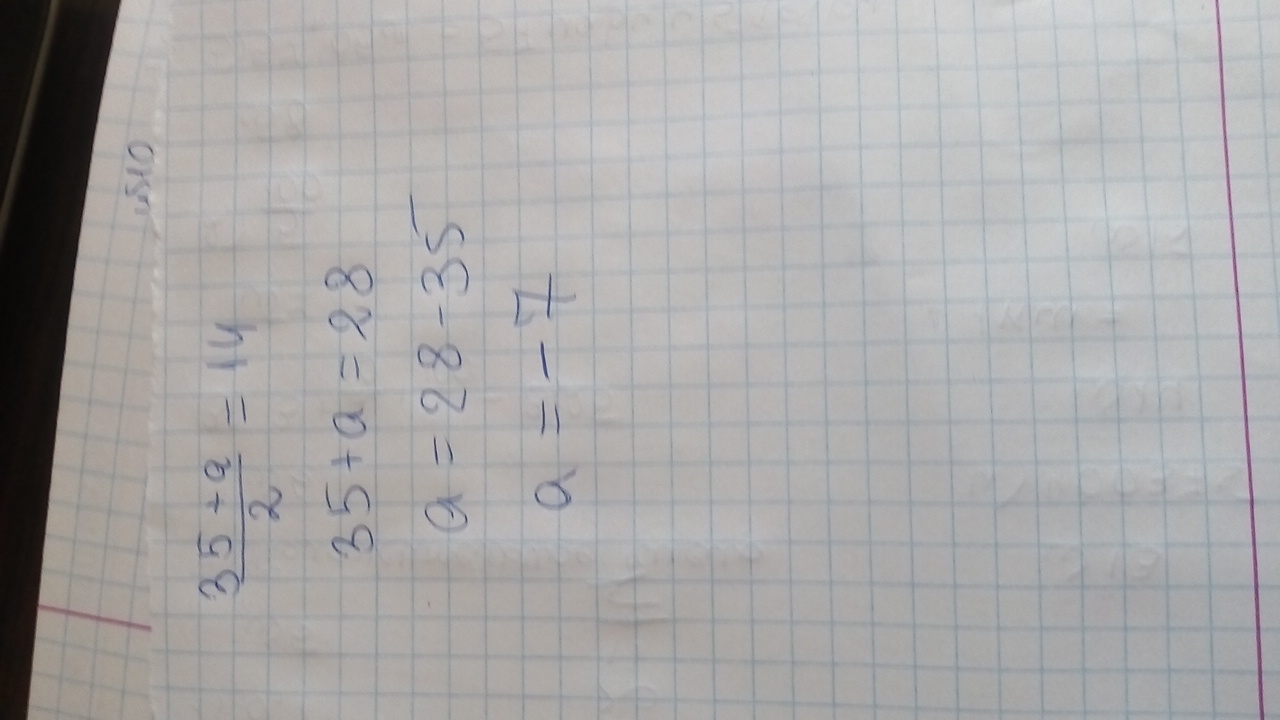 35 + a / 2 = 14
35 + a = 28
a = 28 - 35
a = - 7